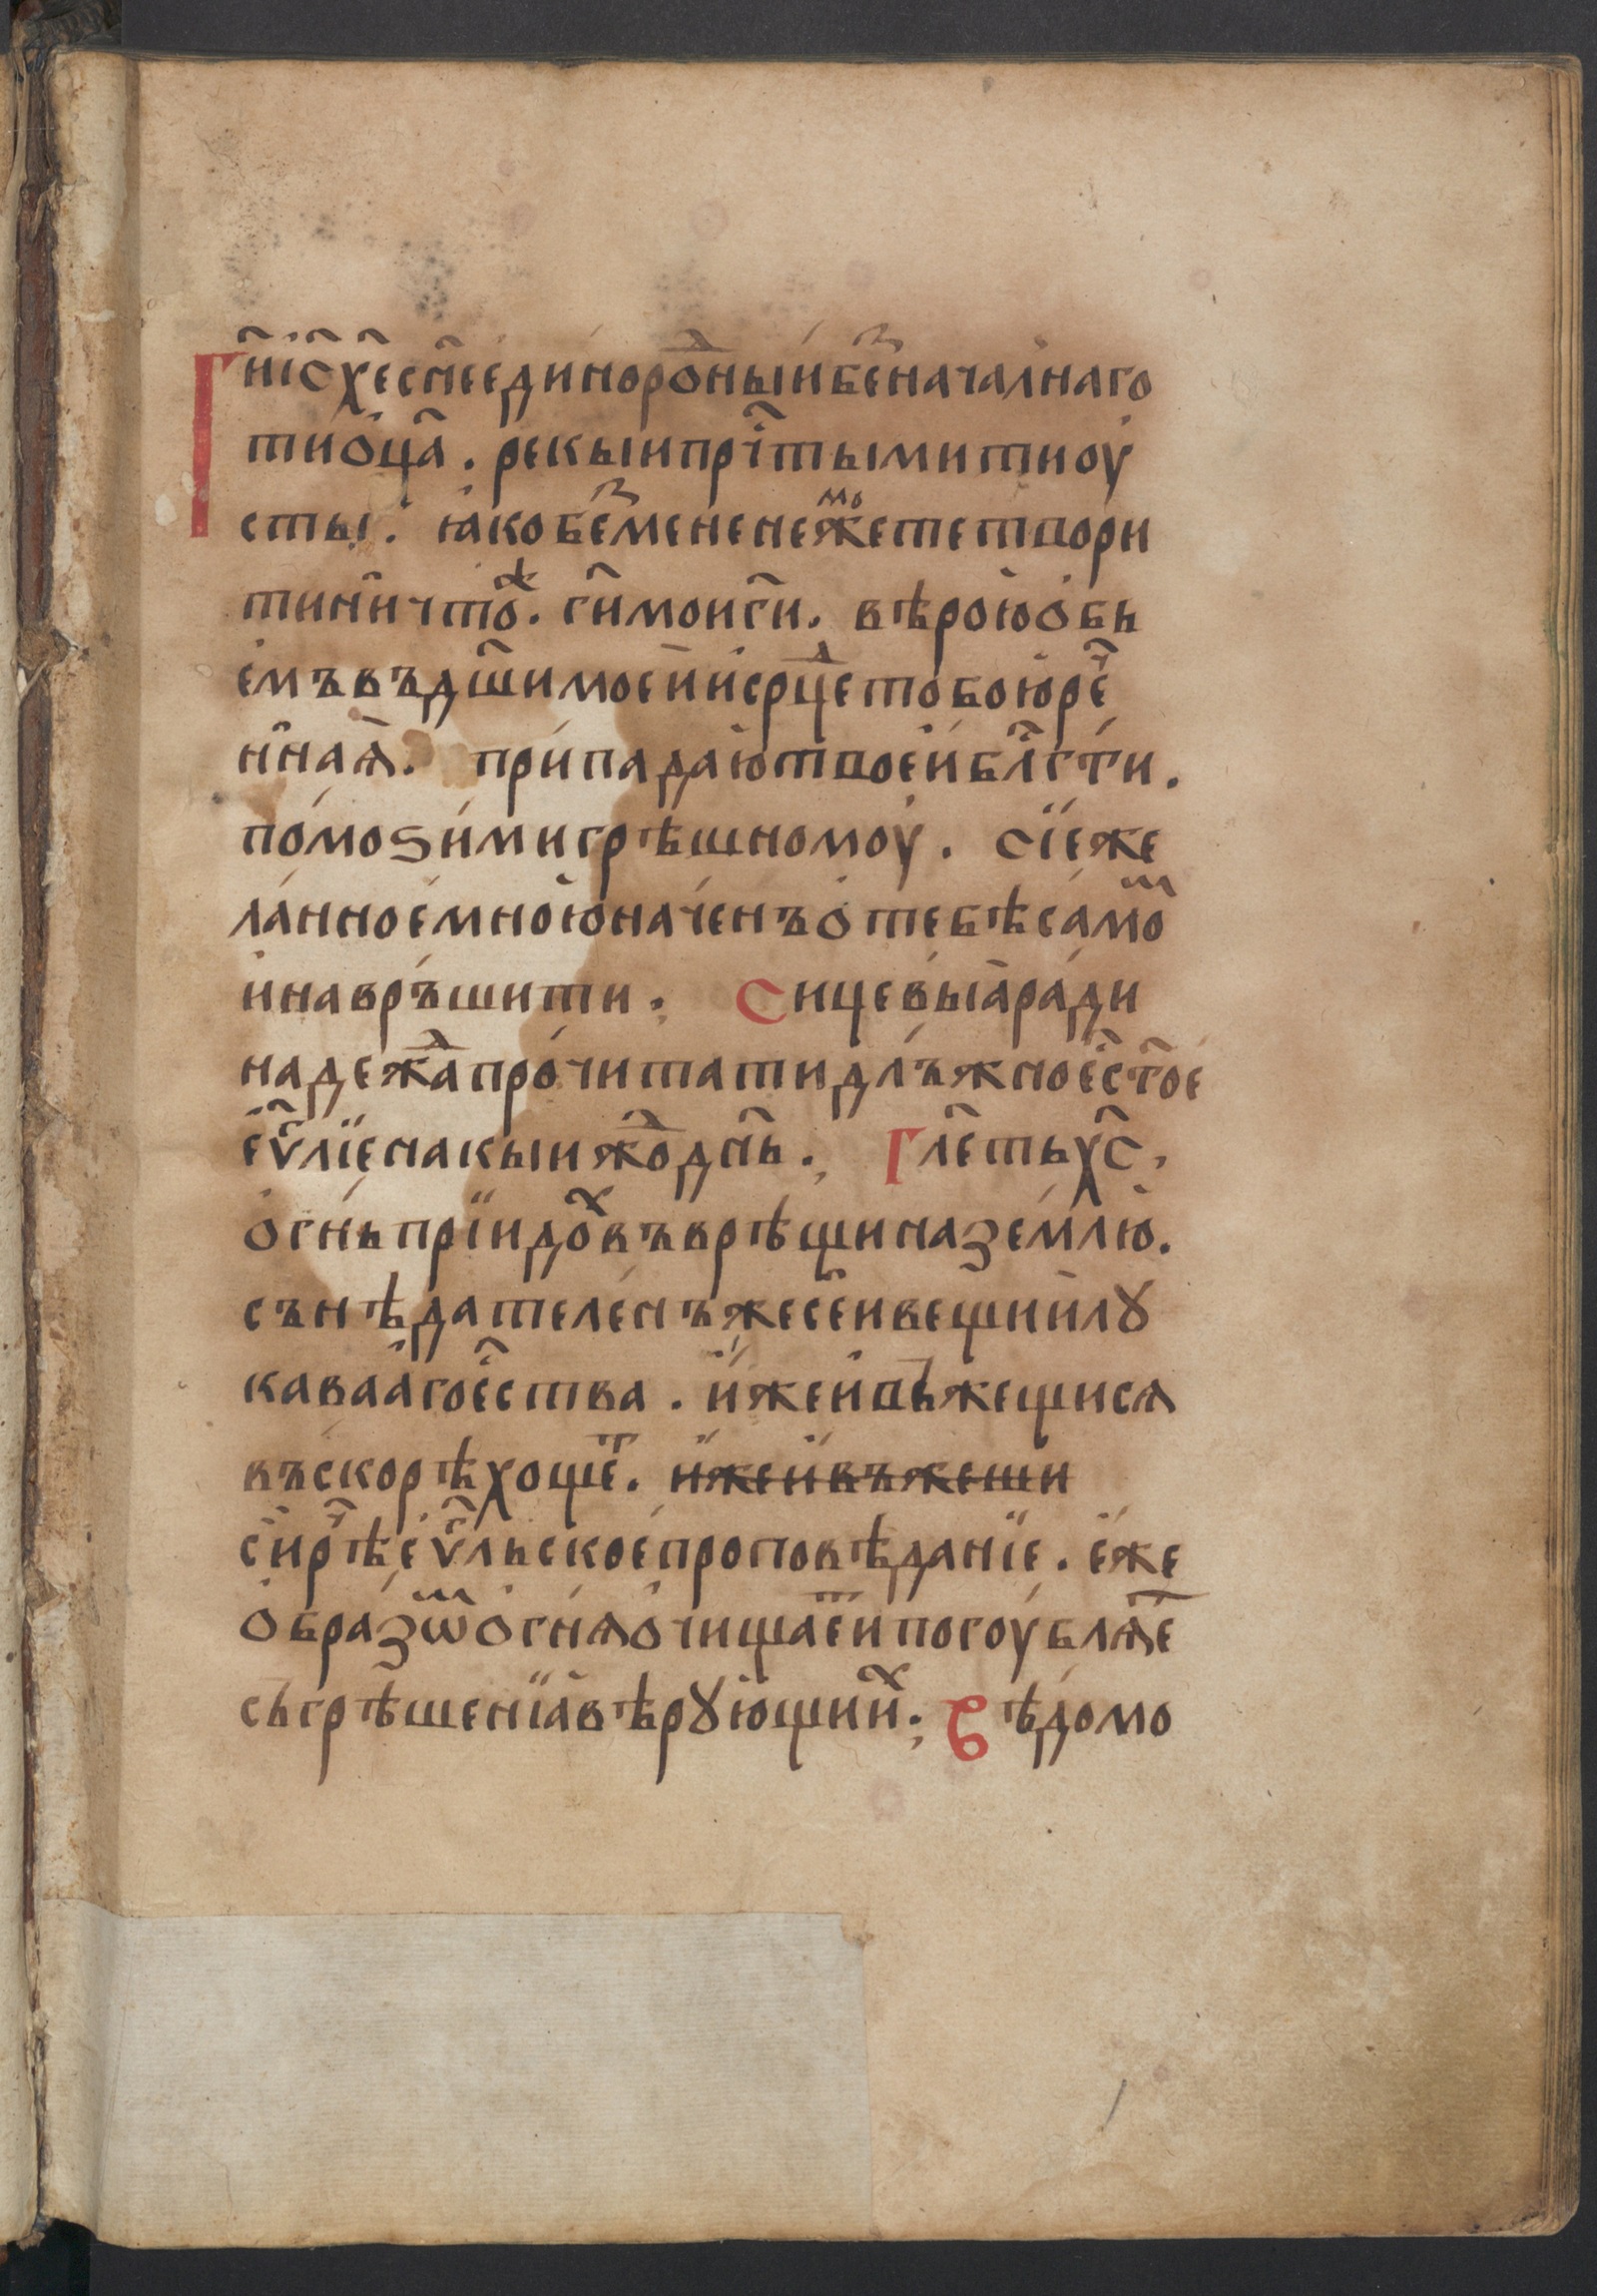 Гн҃і іс҃ х҃е сн҃е единоро́дⷣныи беⷥначалнаго
ти ѻц҃а. рекыи прⷭ҇тыми ти оу
сты. ꙗко беⷥ мене не можете твори
ти ничтоⷤ. г҃и мои г҃и. вѣрою ѡбь
емъ въ дш҃и моеи и срⷣце тобою ре҃
нна́ѧ. припадаю твоеи блг҃сти.
помоѕи ми грѣшномоу. сїе же
ланное мною наченъ ѡ тебѣ самоⷨ
и наврьшити. Сицевыа ради
надежⷣа прочитати длъжно е҃ ст҃ое
еѵ҃лїе на кыижⷣо дн҃ь. Гл҃еть хс҃,
огнь прїидоⷯ въврѣщи на землю.
сънѣдателенъ же сеи вещи и лꙋ
каваагоестества. иже и вьжещи сѧ
въскорѣ хощеⷮ. иже и въжещи
си рⷱ҇ѣ еѵ҃льское проповѣданїе. еже
ѻбразоⷨ огнѧ очищаеⷮ и погоублѧеⷮ
съгрѣшенїа вѣрꙋющиⷯ; Вѣдомо